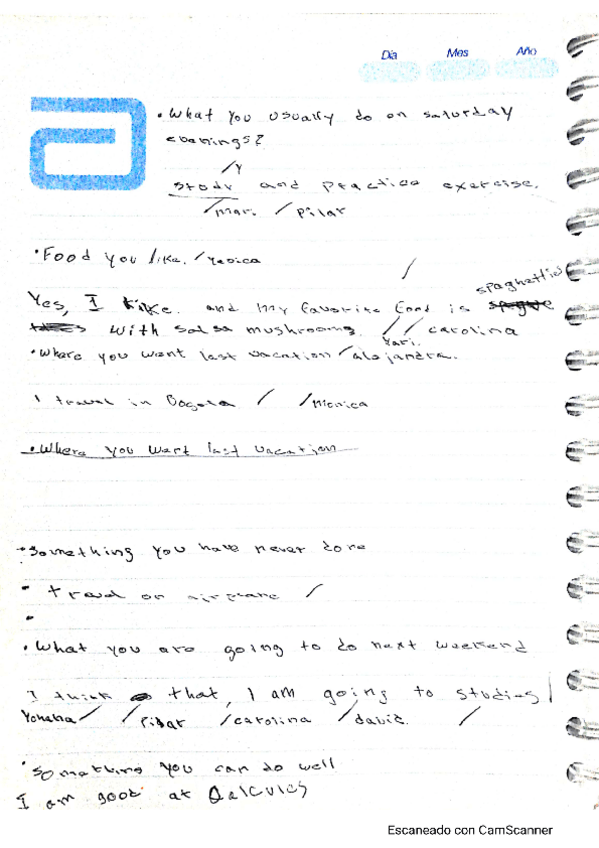 Día Mes Año
• What you usually do on saturday
evenings?
/y
study and practice exercise.
/mari. /Pilar
• Food you like. /Yesica
/
spaghettis
Yes, I like. and my favorite food is
with salsa mushrooms. // carolina
Yari.
• Where you went last vacation /alejandra.
I travel in Bogota / /Monica
• Where you went last vacation
• Something you have never done
• travel on airplane /
•
• What you are going to do next weekend
I think that, I am going to studies/
Yohana/ /Pilar /carolina /david. /
• Something you can do well
I am good at Qalculus
Escaneado con CamScanner